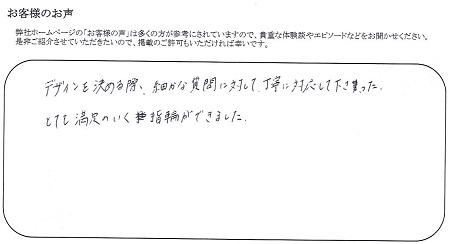 お客様のお声
弊社ホームページの「お客様の声」は多くの方が参考にされていますので、貴重な体験談やエピソードなどをお聞かせください。
是非ご紹介させていただきたいので、掲載のご許可もいただければ幸いです。
デザインを決める際、細かな質問に対して、丁寧に対応して下さった。
とても満足のいく指輪ができました。